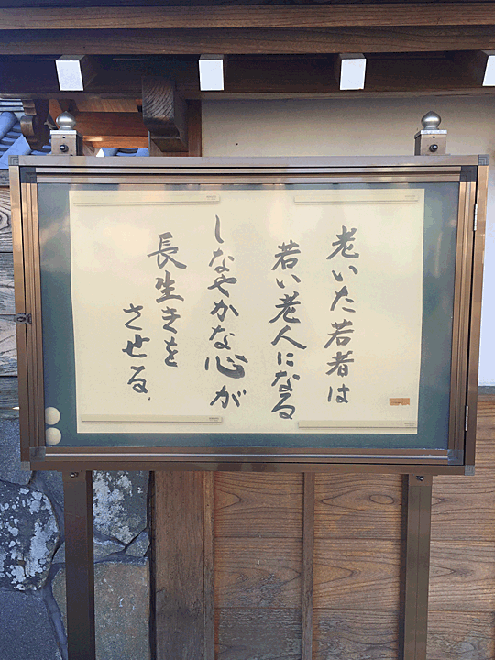 老いた若者は
若い老人になる
しなやかな心が
長生きを
させる.